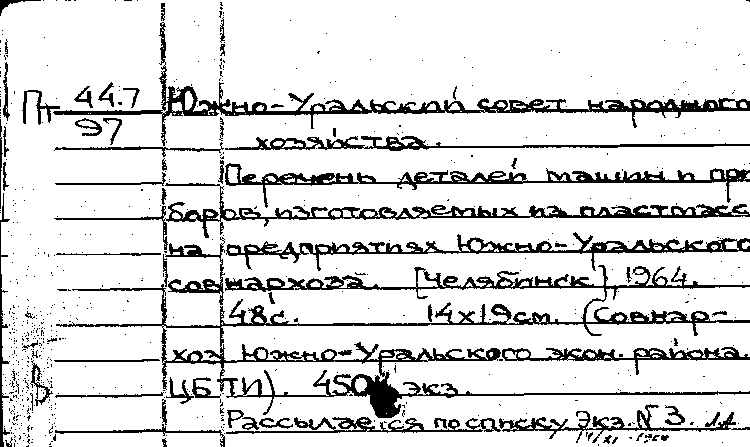 Пт 44.7 Южно-Уральский совет народного
97
хозяйства.
Перечень деталей машин и при
боров, изготовляемых из пластмасс
на предприятиях Южно-Уральского
совнархоза. [Челябинск], 1964.
48с. 14х19см. (Совнар-
хоз Южно-Уральского экон. района.
ЦБТИ). 450 экз.
Рассылается по списку Экз. № 3.